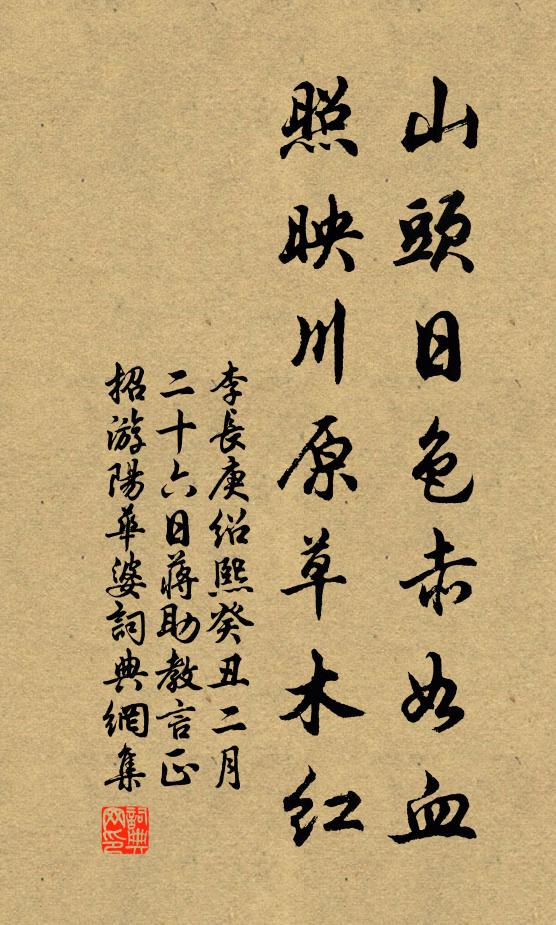 山頭日色赤如血
照映川原草木紅
李長庚紹熙癸丑二月
二十六日蔣助教言正
招游陽華婆詞典網集
詞典
网印